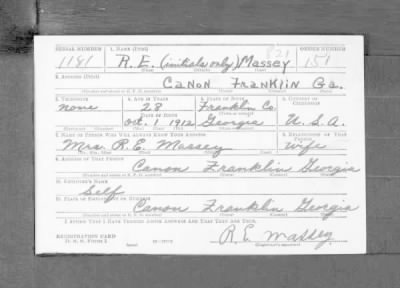 SERIAL NUMBER 1. NAME (Print) ORDER NUMBER
1181 R. E. (initials only) Massey 821 151
(First) (Middle) (Last)
2. ADDRESS (Print)
CANON FRANKLIN Ga.
3. TELEPHONE 4. AGE IN YEARS 5. PLACE OF BIRTH 6. COUNTRY OF CITIZENSHIP
none 28 Franklin Co.
DATE OF BIRTH (Town or county)
Oct. 1 1912 Georgia U.S.A.
7. NAME OF PERSON WHO WILL ALWAYS KNOW YOUR ADDRESS 8. RELATIONSHIP OF THAT PERSON
Mrs. R. E. Massey wife
9. ADDRESS OF THAT PERSON
Canon Franklin Georgia
10. EMPLOYER'S NAME
Self
11. PLACE OF EMPLOYMENT OR BUSINESS
Canon Franklin Georgia
I AFFIRM THAT I HAVE VERIFIED ABOVE ANSWERS AND THAT THEY ARE TRUE.
REGISTRATION CARD R. E. Massey
D. S. S. Form 1 (Registrant's signature)